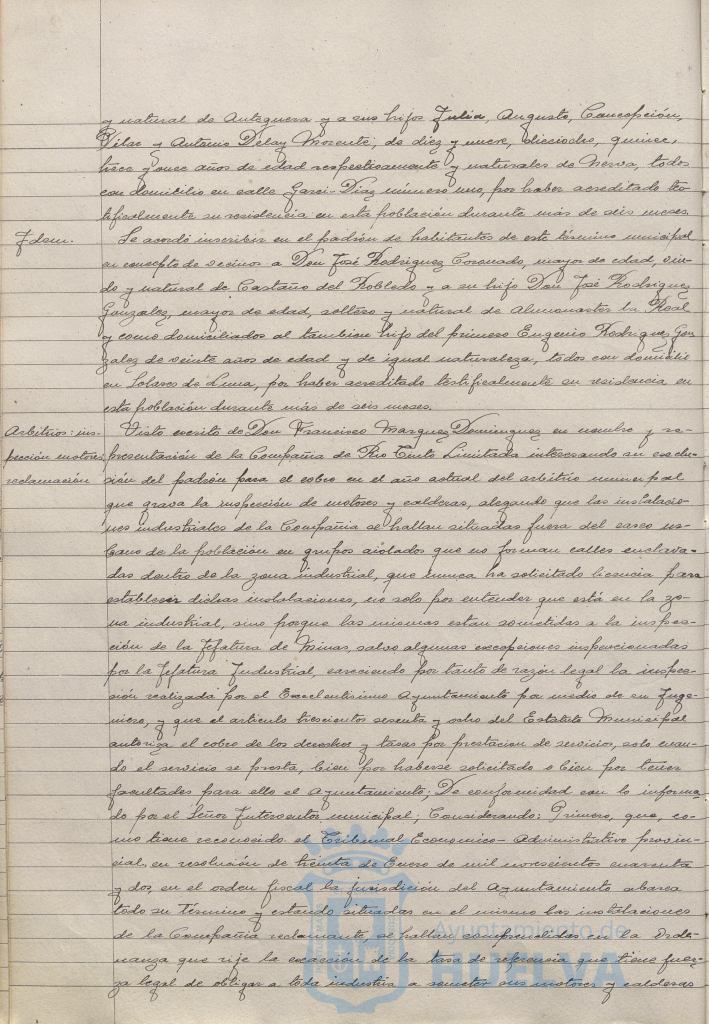 y natural de Antequera y a sus hijos Julia, Augusto, Concepción,
Pilar y Antonio Delay Morente, de diez y nueve, dieciocho, quince,
trece y once años de edad respectivamente y naturales de Nerva, todos
con domicilio en calle Garci-Diaz número uno, por haber acreditado tes-
tificalmente su residencia en esta población durante más de seis meses.
Idem.
Se acordó inscribir en el padrón de habitantes de este término municipal
en concepto de vecinos a Don José Rodriguez Coronado, mayor de edad, viu-
do y natural de Castaño del Robledo y a su hijo Don José Rodriguez
Gonzalez, mayor de edad, soltero y natural de Almonaster la Real
y como domiciliados al tambien hijo del primero Eugenio Rodriguez Gon
zalez de veinte años de edad y de igual naturaleza, todos con domicilio
en Solares de Luna, por haber acreditado testificalmente su residencia en
esta población durante más de seis meses.
Arbitrios: ins-
pección motores
reclamación
Visto escrito de Don Francisco Marquez Dominguez en nombre y re-
presentación de la Compañia de Rio Tinto Limitada interesando su exclu-
sión del padrón para el cobro en el año actual del arbitrio municipal
que grava la inspección de motores y calderas, alegando que las instalacio-
nes industriales de la Compañia se hallan situadas fuera del casco ur-
bano de la población en grupos aislados que no forman calles enclava-
das dentro de la zona industrial, que nunca ha solicitado licencia para
establecer dichas instalaciones, no solo por entender que está en la zo-
na industrial, sino porque las mismas estan sometidas a la inspec-
ción de la Jefatura de Minas, salvo algunas excepciones inspeccionadas
por la Jefatura Industrial, careciendo por tanto de razón legal la inspec-
ción realizada por el Excelentísimo Ayuntamiento por medio de su Inge-
niero, y que el articulo trescientos sesenta y ocho del Estatuto Municipal
autoriza el cobro de los derechos y tasas por prestacion de servicios, solo cuan-
do el servicio se presta, bien por haberse solicitado o bien por tener
facultades para ello el Ayuntamiento; De conformidad con lo informa-
do por el Señor Interventor municipal; Considerando: Primero, que, co-
mo tiene reconocido el Tribunal Economico-Administrativo provin-
cial en resolución de treinta de Enero de mil novecientos cuarenta
y dos, en el orden fiscal la jurisdición del Ayuntamiento abarca
todo su Término y estando situadas en el mismo las instalaciones
de la Compañia reclamante, se hallan comprendidas en la Orde-
nanza que rije la exacción de la tasa de referencia que tiene fuer-
za legal de obligar a toda industria a someter sus motores y calderas
Ayuntamiento de
HUELVA